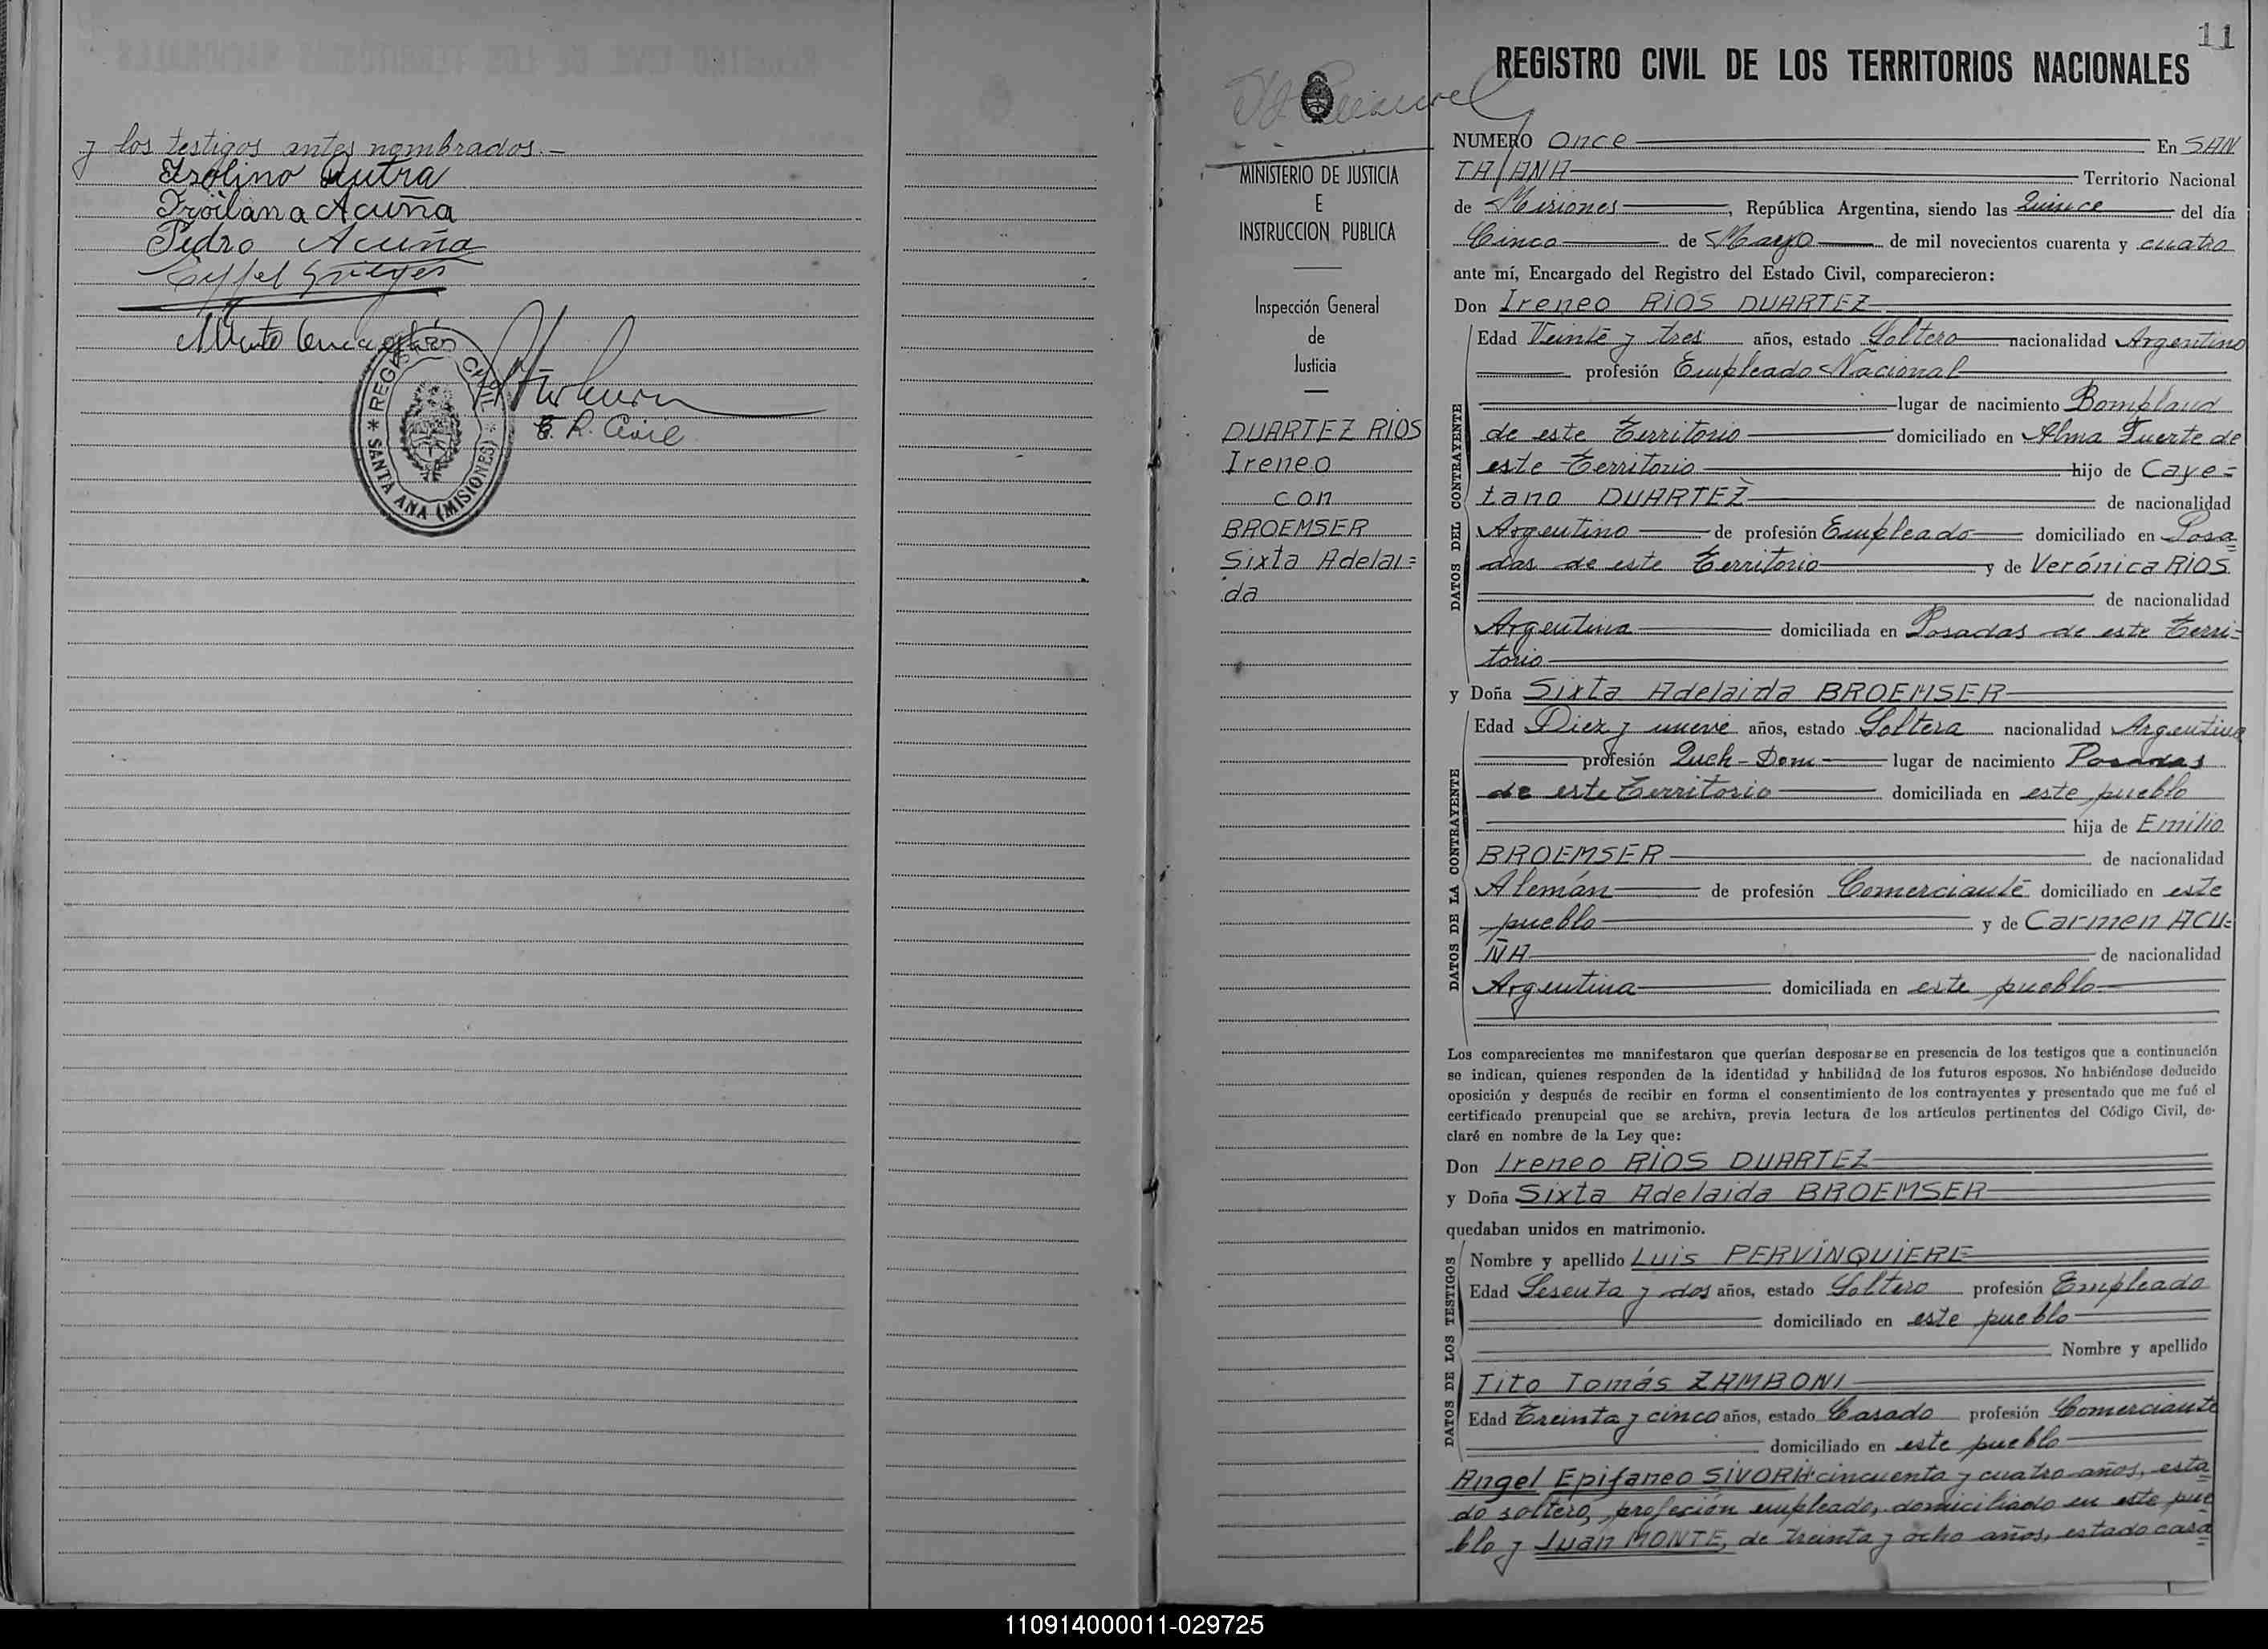 y los testigos antes nombrados.—
Isolino Dutra
Troilana Acuña
Pedro Acuña
REGISTRO CIVIL
* SANTA ANA (MISIONES) *
E. R. Civil
11
REGISTRO CIVIL DE LOS TERRITORIOS NACIONALES
MINISTERIO DE JUSTICIA
E
INSTRUCCION PUBLICA
Inspección General
de
Justicia
DUARTEZ RIOS
Ireneo
con
BROEMSER
Sixta Adelai=
da
NUMERO Once En SAN
TA ANA Territorio Nacional
de Misiones, República Argentina, siendo las Quince del día
Cinco de Mayo de mil novecientos cuarenta y cuatro
ante mí, Encargado del Registro del Estado Civil, comparecieron:
Don Ireneo RIOS DUARTEZ
DATOS DEL CONTRAYENTE
Edad Veinte y tres años, estado Soltero nacionalidad Argentino
profesión Empleado Nacional
lugar de nacimiento Bompland
de este Territorio domiciliado en Alma Fuerte de
este Territorio hijo de Caye=
tano DUARTEZ de nacionalidad
Argentino de profesión Empleado domiciliado en Posa=
das de este Territorio y de Verónica RIOS
de nacionalidad
Argentina domiciliada en Posadas de este Terri=
torio
y Doña Sixta Adelaida BROEMSER
DATOS DE LA CONTRAYENTE
Edad Diez y nueve años, estado Soltera nacionalidad Argentina
profesión Queh-Dom lugar de nacimiento Posadas
de este Territorio domiciliada en este pueblo
hija de Emilio
BROEMSER de nacionalidad
Alemán de profesión Comerciante domiciliado en este
pueblo y de Carmen ACU=
ÑA de nacionalidad
Argentina domiciliada en este pueblo
Los comparecientes me manifestaron que querían desposarse en presencia de los testigos que a continuación
se indican, quienes responden de la identidad y habilidad de los futuros esposos. No habiéndose deducido
oposición y después de recibir en forma el consentimiento de los contrayentes y presentado que me fué el
certificado prenupcial que se archiva, previa lectura de los artículos pertinentes del Código Civil, de-
claré en nombre de la Ley que:
Don Ireneo RIOS DUARTEZ
y Doña Sixta Adelaida BROEMSER
quedaban unidos en matrimonio.
DATOS DE LOS TESTIGOS
Nombre y apellido Luis PERVINQUIERE
Edad Sesenta y dos años, estado Soltero profesión Empleado
domiciliado en este pueblo
Nombre y apellido
Tito Tomás ZAMBONI
Edad Treinta y cinco años, estado Casado profesión Comerciante
domiciliado en este pueblo
Angel Epifaneo SIVORI cincuenta y cuatro años, esta=
do soltero, profesión empleado, domiciliado en este pue=
blo y Juan MONTE, de treinta y ocho años, estado casa=
110914000011-029725